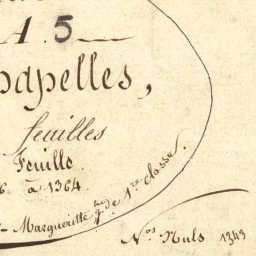 A. 5
hapelles,
feuilles
Feuille
6 à 1364
Marguerittes de 1re classe.
Nos Nuls 1343